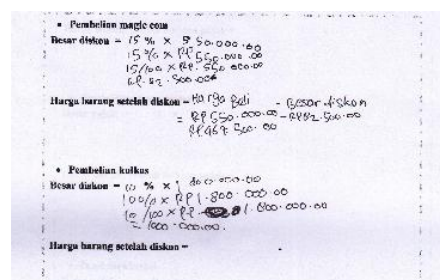 • Pembelian magic com
Besar diskon = 15 % × 550.000.00
15 % × RP 550.000.00
15/100 × RP. 550.000.00
RP. 82.500.00
Harga barang setelah diskon = Harga Beli - Besar diskon
= RP 550.000.00 - RP 82.500.00
RP 467.500.00
• Pembelian kulkas
Besar diskon = 10 % × 1.800.000.00
100% × RP 1.800.000.00
10/100 × RP. 1.800.000.00
= 1000.000.00.
Harga barang setelah diskon =